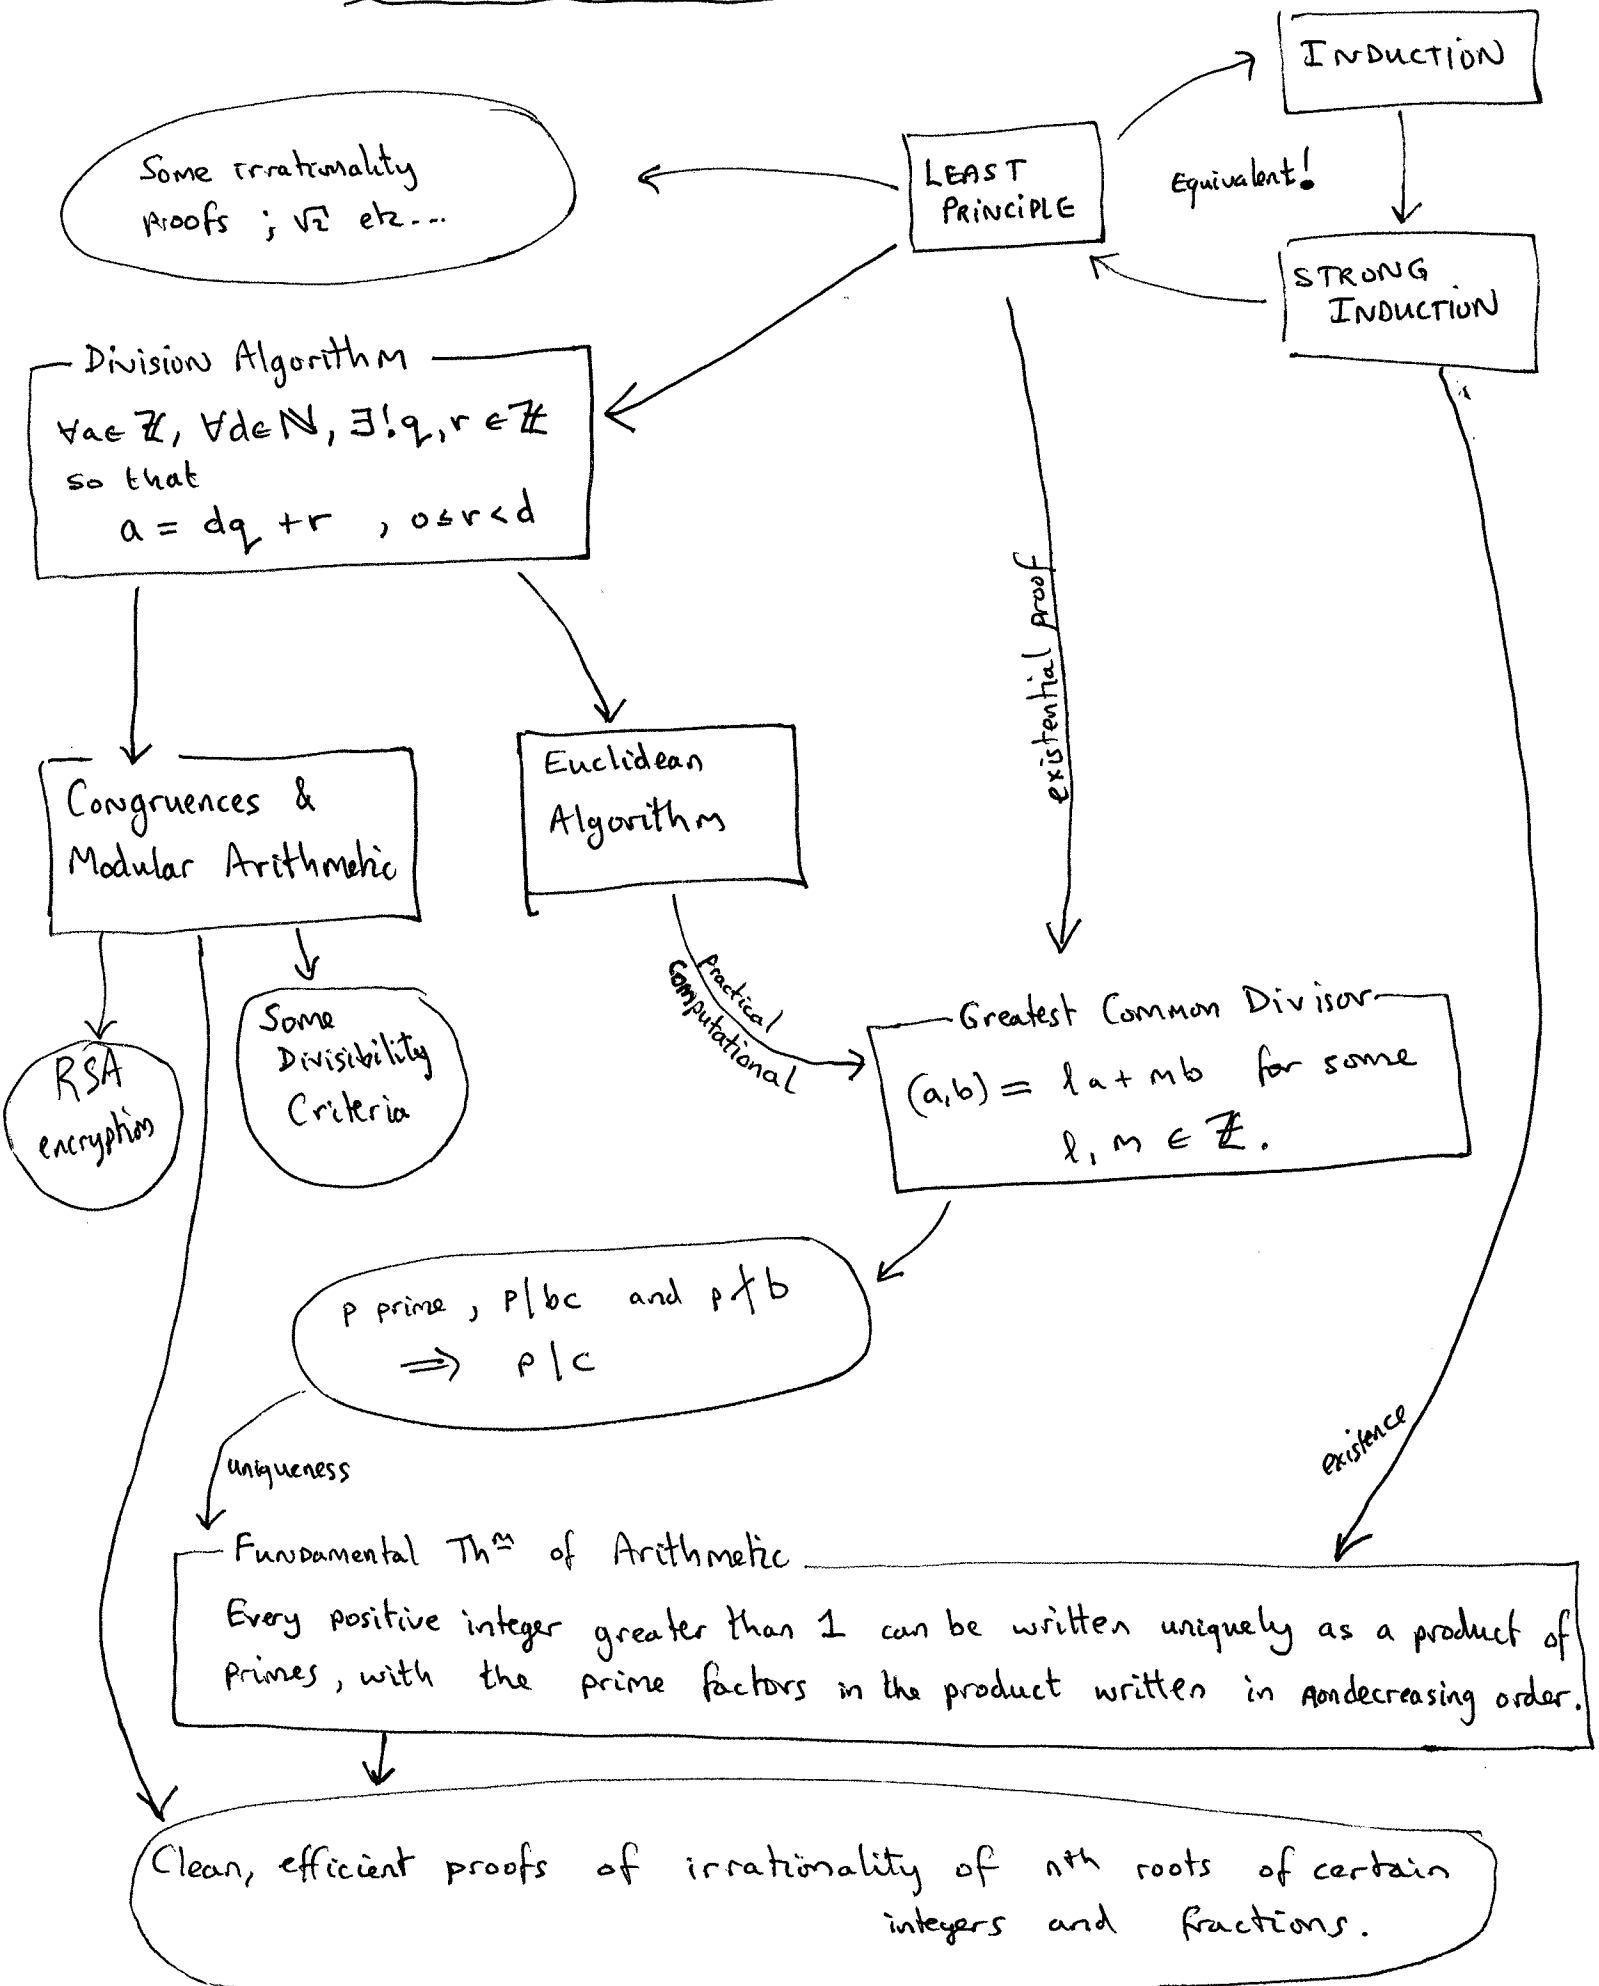 INDUCTION
LEAST
PRINCIPLE
Equivalent!
STRONG
INDUCTION
Some irrationality
proofs ; √2 etc...
Division Algorithm
∀a∈ℤ, ∀d∈ℕ, ∃!q,r ∈ℤ
so that
a = dq + r , 0≤r<d
existential proof
Congruences &
Modular Arithmetic
Euclidean
Algorithm
Practical
Computational
RSA
encryption
Some
Divisibility
Criteria
Greatest Common Divisor
(a,b) = la + mb for some
l, m ∈ ℤ.
p prime, p|bc and p∤b
⟹ p|c
uniqueness
existence
Fundamental Thm of Arithmetic
Every positive integer greater than 1 can be written uniquely as a product of
primes, with the prime factors in the product written in nondecreasing order.
Clean, efficient proofs of irrationality of nth roots of certain
integers and fractions.